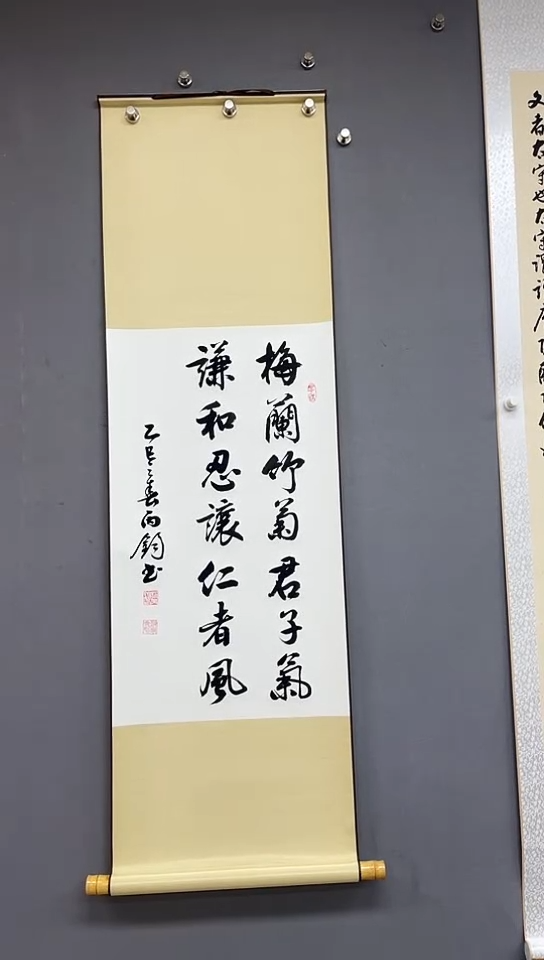 梅蘭竹菊君子氣
謙和忍讓仁者風
乙巳之春丙鈞書